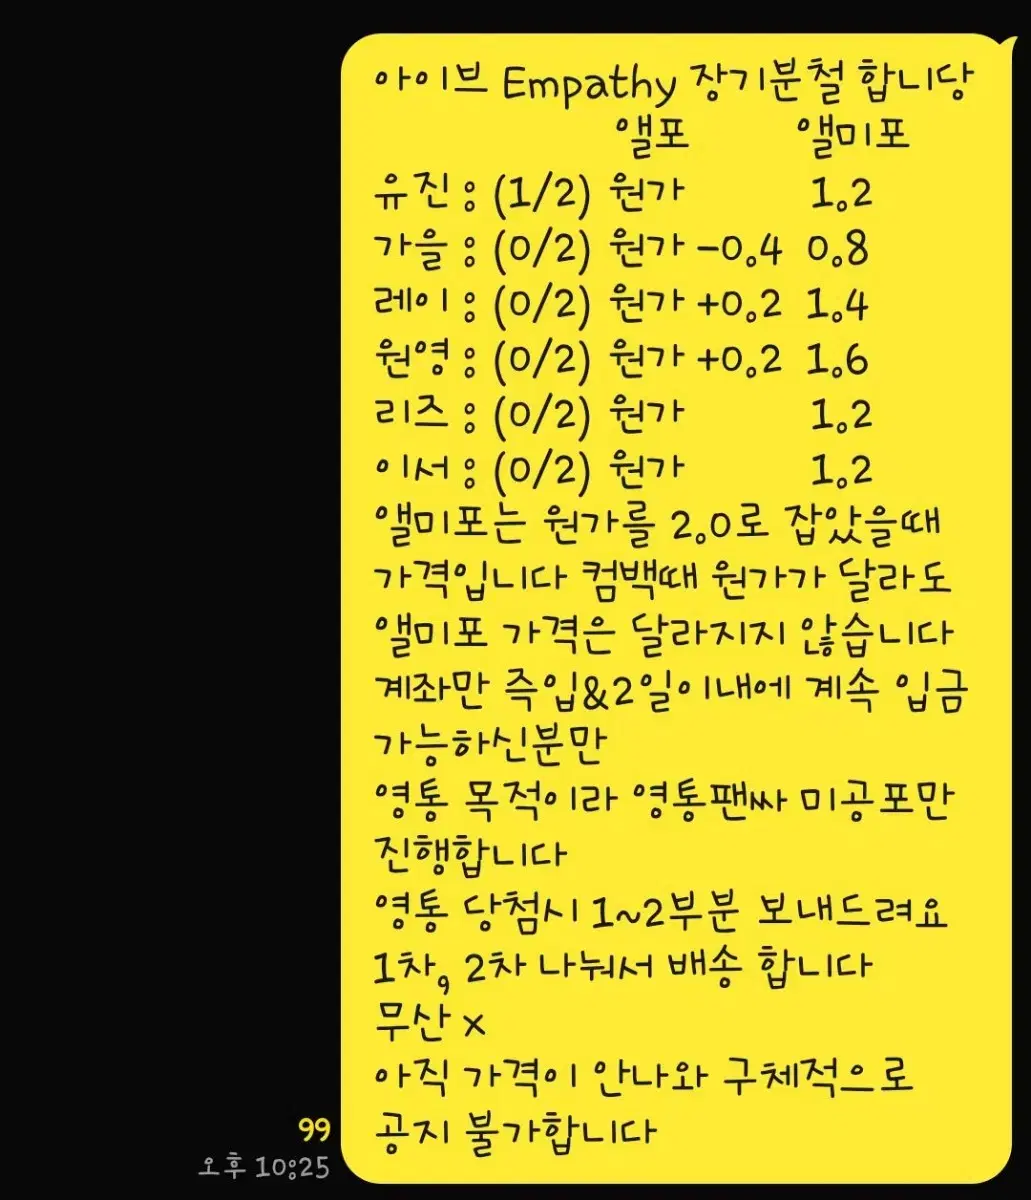 아이브 Empathy 장기분철 합니당
앨포 앨미포
유진 : (1/2) 원가 1.2
가을 : (0/2) 원가 -0.4 0.8
레이 : (0/2) 원가 +0.2 1.4
원영 : (0/2) 원가 +0.2 1.6
리즈 : (0/2) 원가 1.2
이서 : (0/2) 원가 1.2
앨미포는 원가를 2.0로 잡았을때
가격입니다 컴백때 원가가 달라도
앨미포 가격은 달라지지 않습니다
계좌만 즉입&2일이내에 계속 입금
가능하신분만
영통 목적이라 영통팬싸 미공포만
진행합니다
영통 당첨시 1~2부분 보내드려요
1차, 2차 나눠서 배송 합니다
무산 x
아직 가격이 안나와 구체적으로
공지 불가합니다
99
오후 10:25